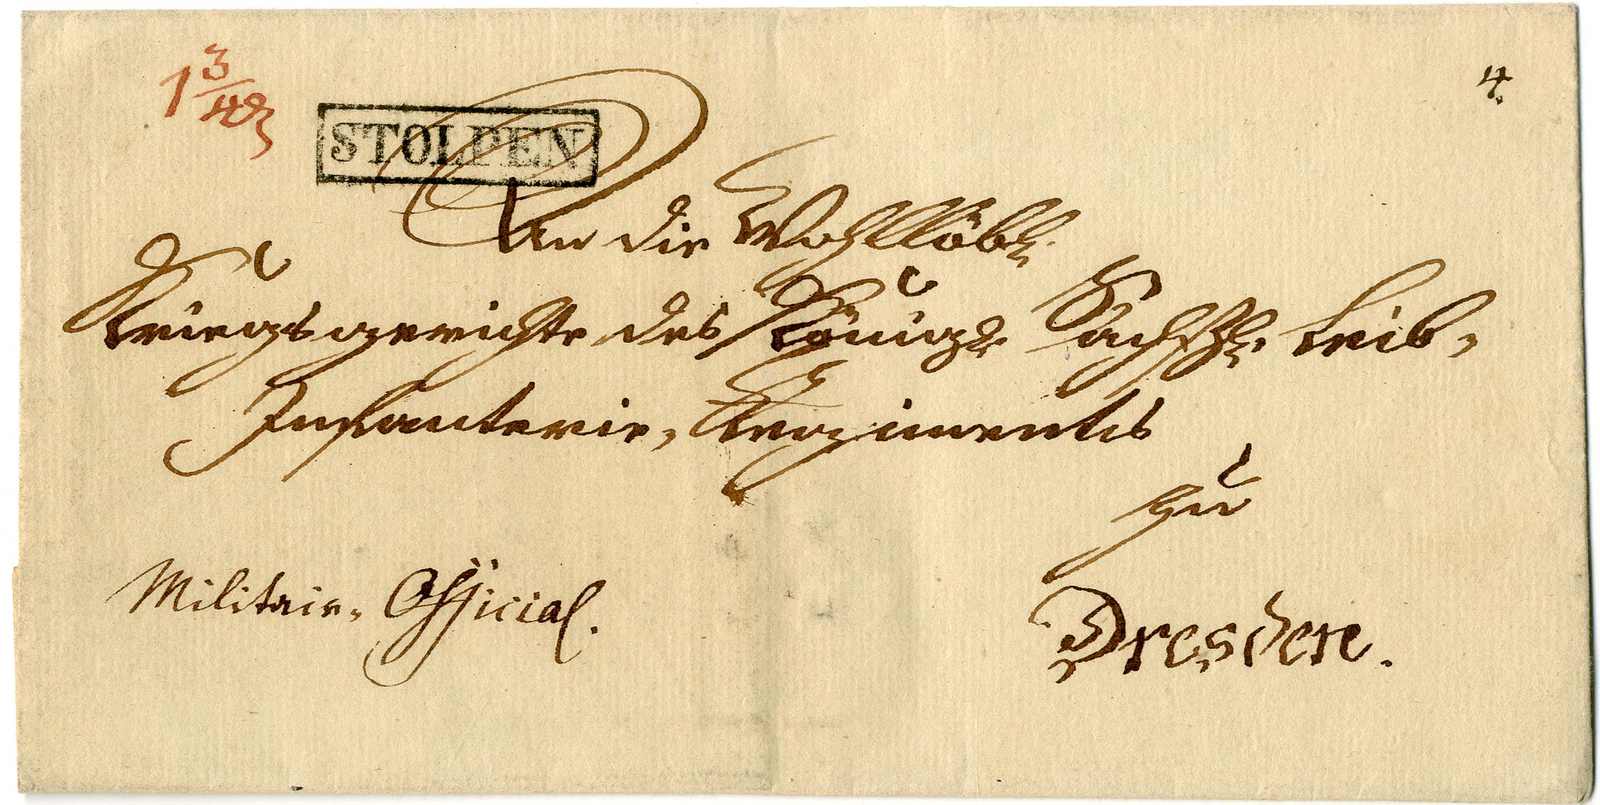 1 3/4
4.
STOLPEN
An die Wohllöbl.
Kriegsgerichte des Königl. Sächß. Leib-
Infanterie-Regiments
zu
Militair-Official.
Dresden.